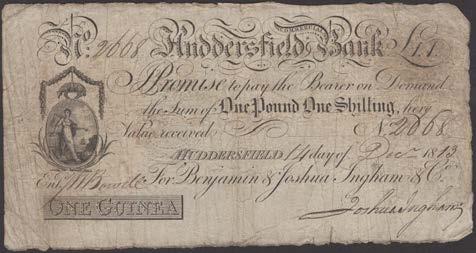 COMMERCIAL
No. 2668 Huddersfield Bank £1.1.
I Promise to pay the Bearer on Demand
the Sum of One Pound One Shilling, here
Value received N. 2668
HUDDERSFIELD 14 day of Decr 1813
Entd For Benjamin & Joshua Ingham & Co.
ONE GUINEA Joshua Ingham